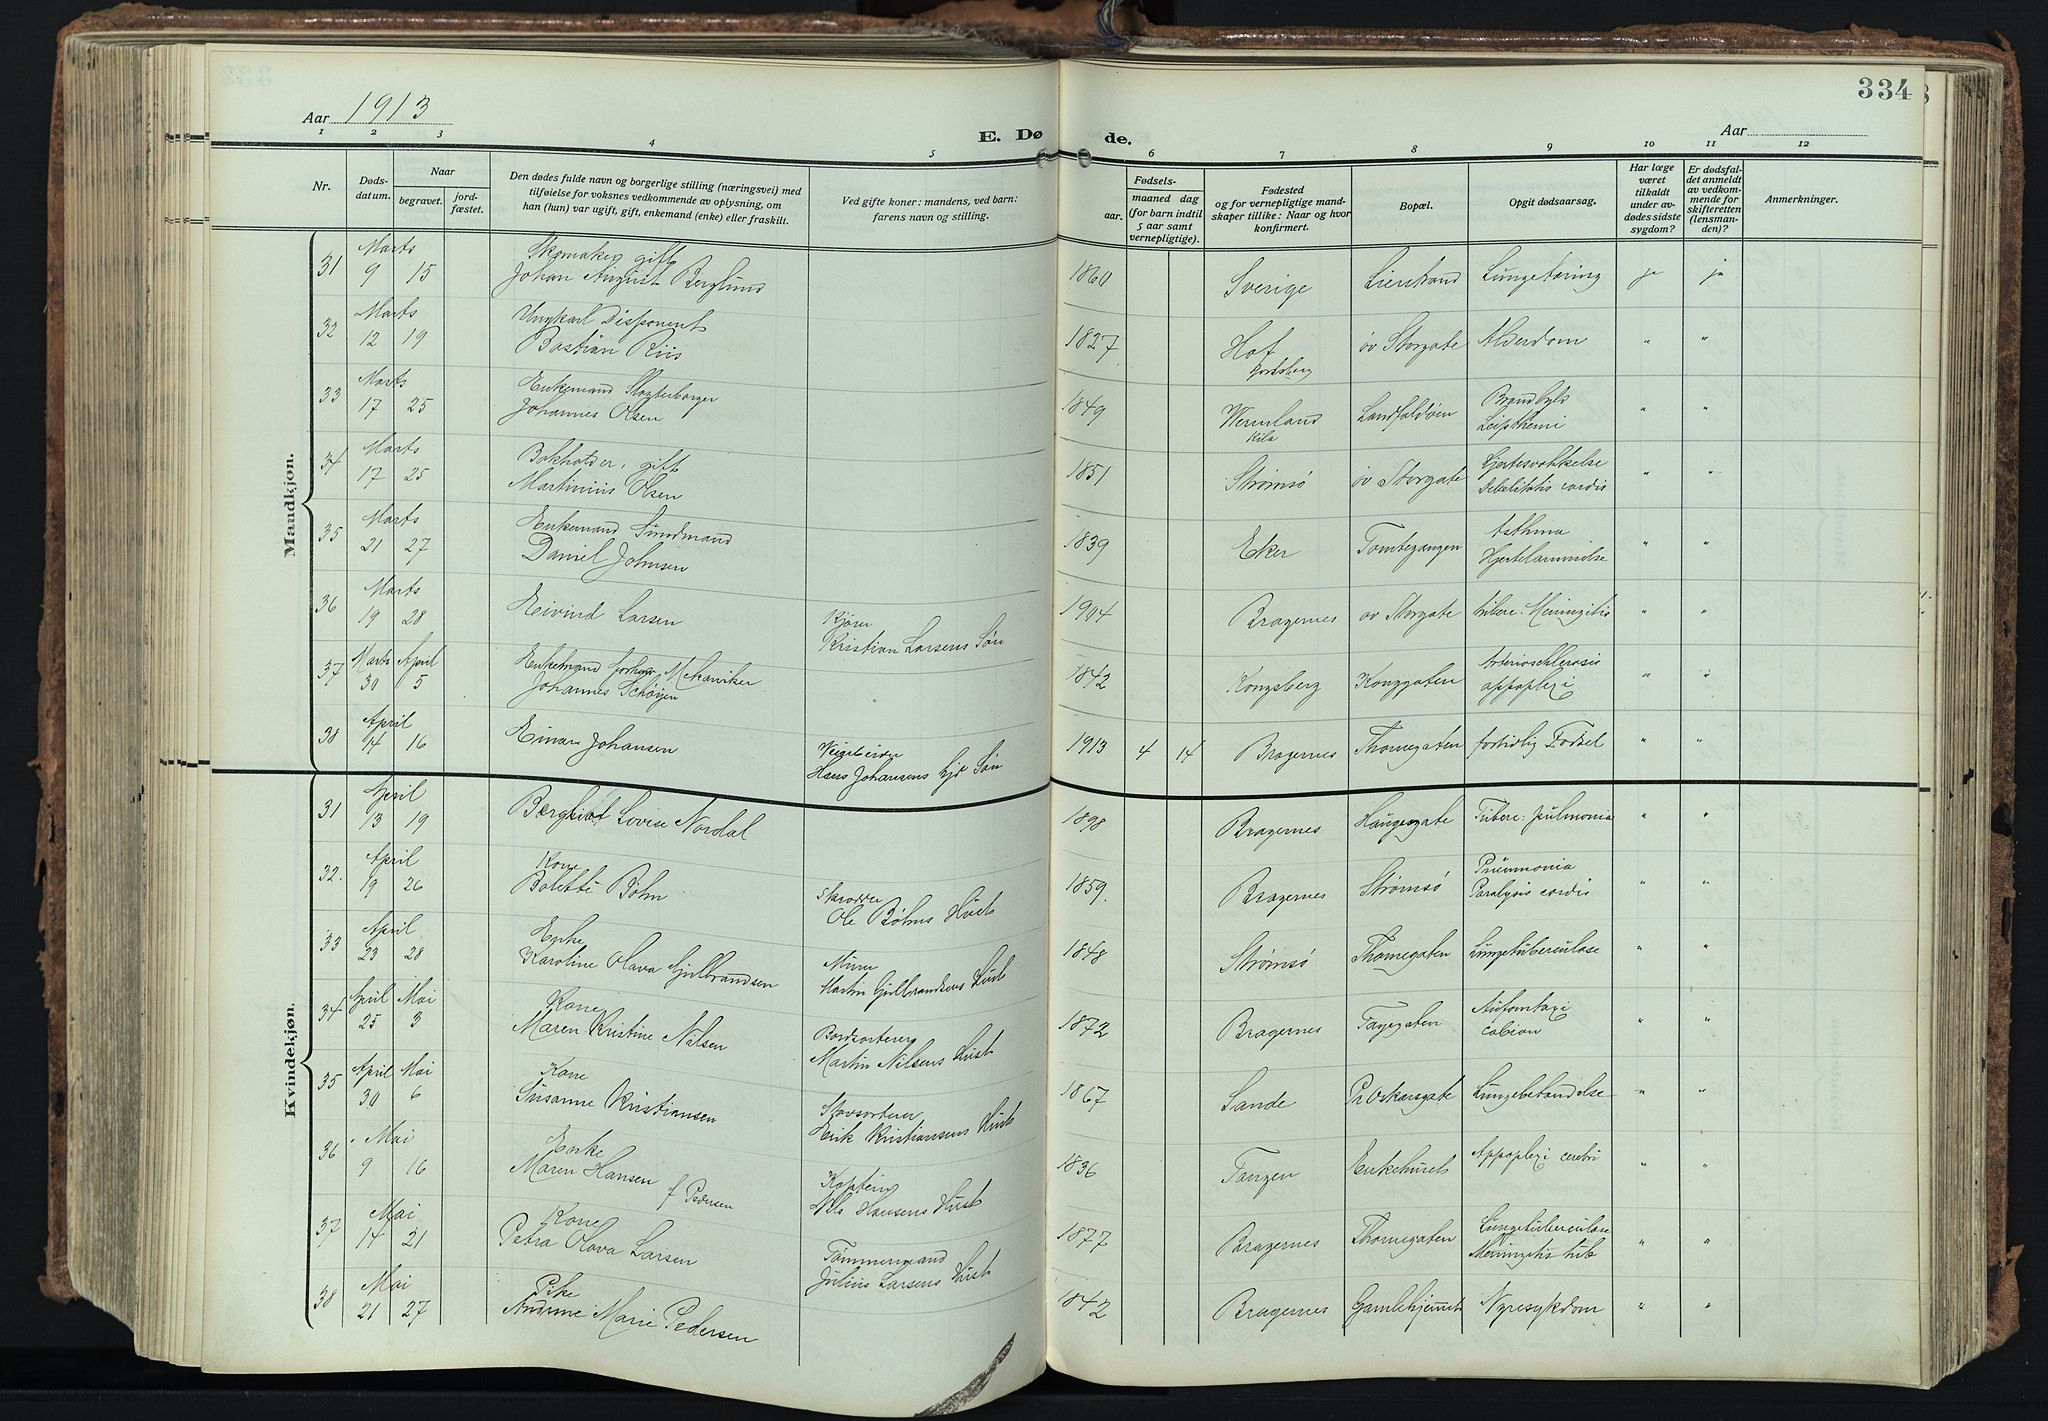 334
Aar 1913
Aar
E. Dø de.
1 2 3 4 5 6 7 8 9 10 11 12
Nr.
Døds-
datum.
Naar
begravet.
jord-
fæstet.
Den dødes fulde navn og borgerlige stilling (næringsvei) med
tilføielse for voksnes vedkommende av oplysning, om
han (hun) var ugift, gift, enkemand (enke) eller fraskilt.
Ved gifte koner: mandens, ved barn:
farens navn og stilling.
Fødsels-
aar. maaned dag
(for barn indtil
5 aar samt
vernepligtige).
Fødested
og for vernepligtige mand-
skaper tillike: Naar og hvor
konfirmert.
Bopæl.
Opgit dødsaarsag.
Har læge
været
tilkaldt
under av-
dødes sidste
sygdom?
Er dødsfal-
det anmeldt
av vedkom-
mende for
skifteretten
(lensman-
den)?
Anmerkninger.
Mandkjøn.
31 Marts 9 15 Skomaker gift
Johan August Berglund 1860 Sverige Lierstrand Lungetæring ja ja
32 Marts 12 19 Ungkarl Disponent
Bastian Riis 1827 Hof øv Storgate Alderdom " "
33 Marts 17 25 Enkemand
Johannes Olsen 1849 Wermland
Kila Landfaldøen " "
34 Marts 17 25 Bokholder, gift
Martinius Olsen 1851 Strømsø øv Storgate Hjertesvækkelse
cordis " "
35 Marts 21 27 Enkemand Sundmand
Daniel Johnsen 1839 Eker Tomtegangen Asthma
Hjertelammelse " "
36 Marts 19 28 Eivind Larsen Kjører
Kristian Larsens Søn 1904 Bragernes øv Storgate tuberc: Meningitis " "
37 Marts 30 April 5 Enkemand forhen Mekaniker
Johannes 1842 Kongsberg Konggaten Arterioschlerosis
appoplexi " "
38 April 14 16 Einar Johansen
Hans Johansens hjd Søn 1913 4 14 Bragernes Thomegaten fortidlig Fødsel " "
Kvindekjøn.
31 April 13 19 Borghild Lovise Nordal 1898 Bragernes Haugesgate Tuberc: pulmonia " "
32. April 19 26 Kone
Bolette Bøhm Skrædder
Ole Bøhms Hust 1859. Bragernes Strømsø Pneumonia
Paralysis cordis " "
33 April 23 28 Enke
Karoline Olava Gulbrandsen Murer
Martin Gulbrandsens Hust 1848 Strømsø Thomegaten Lungetuberculose " "
34 April 25 Mai 3 Kone
Maren Kristine Nilsen Bordsorterer
Martin Nilsens Hust 1872 Bragernes " "
35 April 30 Mai 6 Kone
Susanne Kristiansen Stavsorterer
Erik Kristiansens Hust 1867 Sande Pr Oskarsgate Lungebetændelse " "
36 Mai 9 16 Enke
Maren Hansen f Pedersen Kaptein
Nils Hansens Hust 1836 Tangen Enkehuset Appoplexi cerebri " "
37 Mai 14 21 Kone
Petra Olava Larsen Tømmermand
Julius Larsens Hust 1877 Bragernes Thomegaten Lungetuberculose
Meningitis tub " "
38 Mai 21 27 Pike
Andrine Marie Pedersen 1842 Bragernes Gamlehjemmet Nyresykdom " "